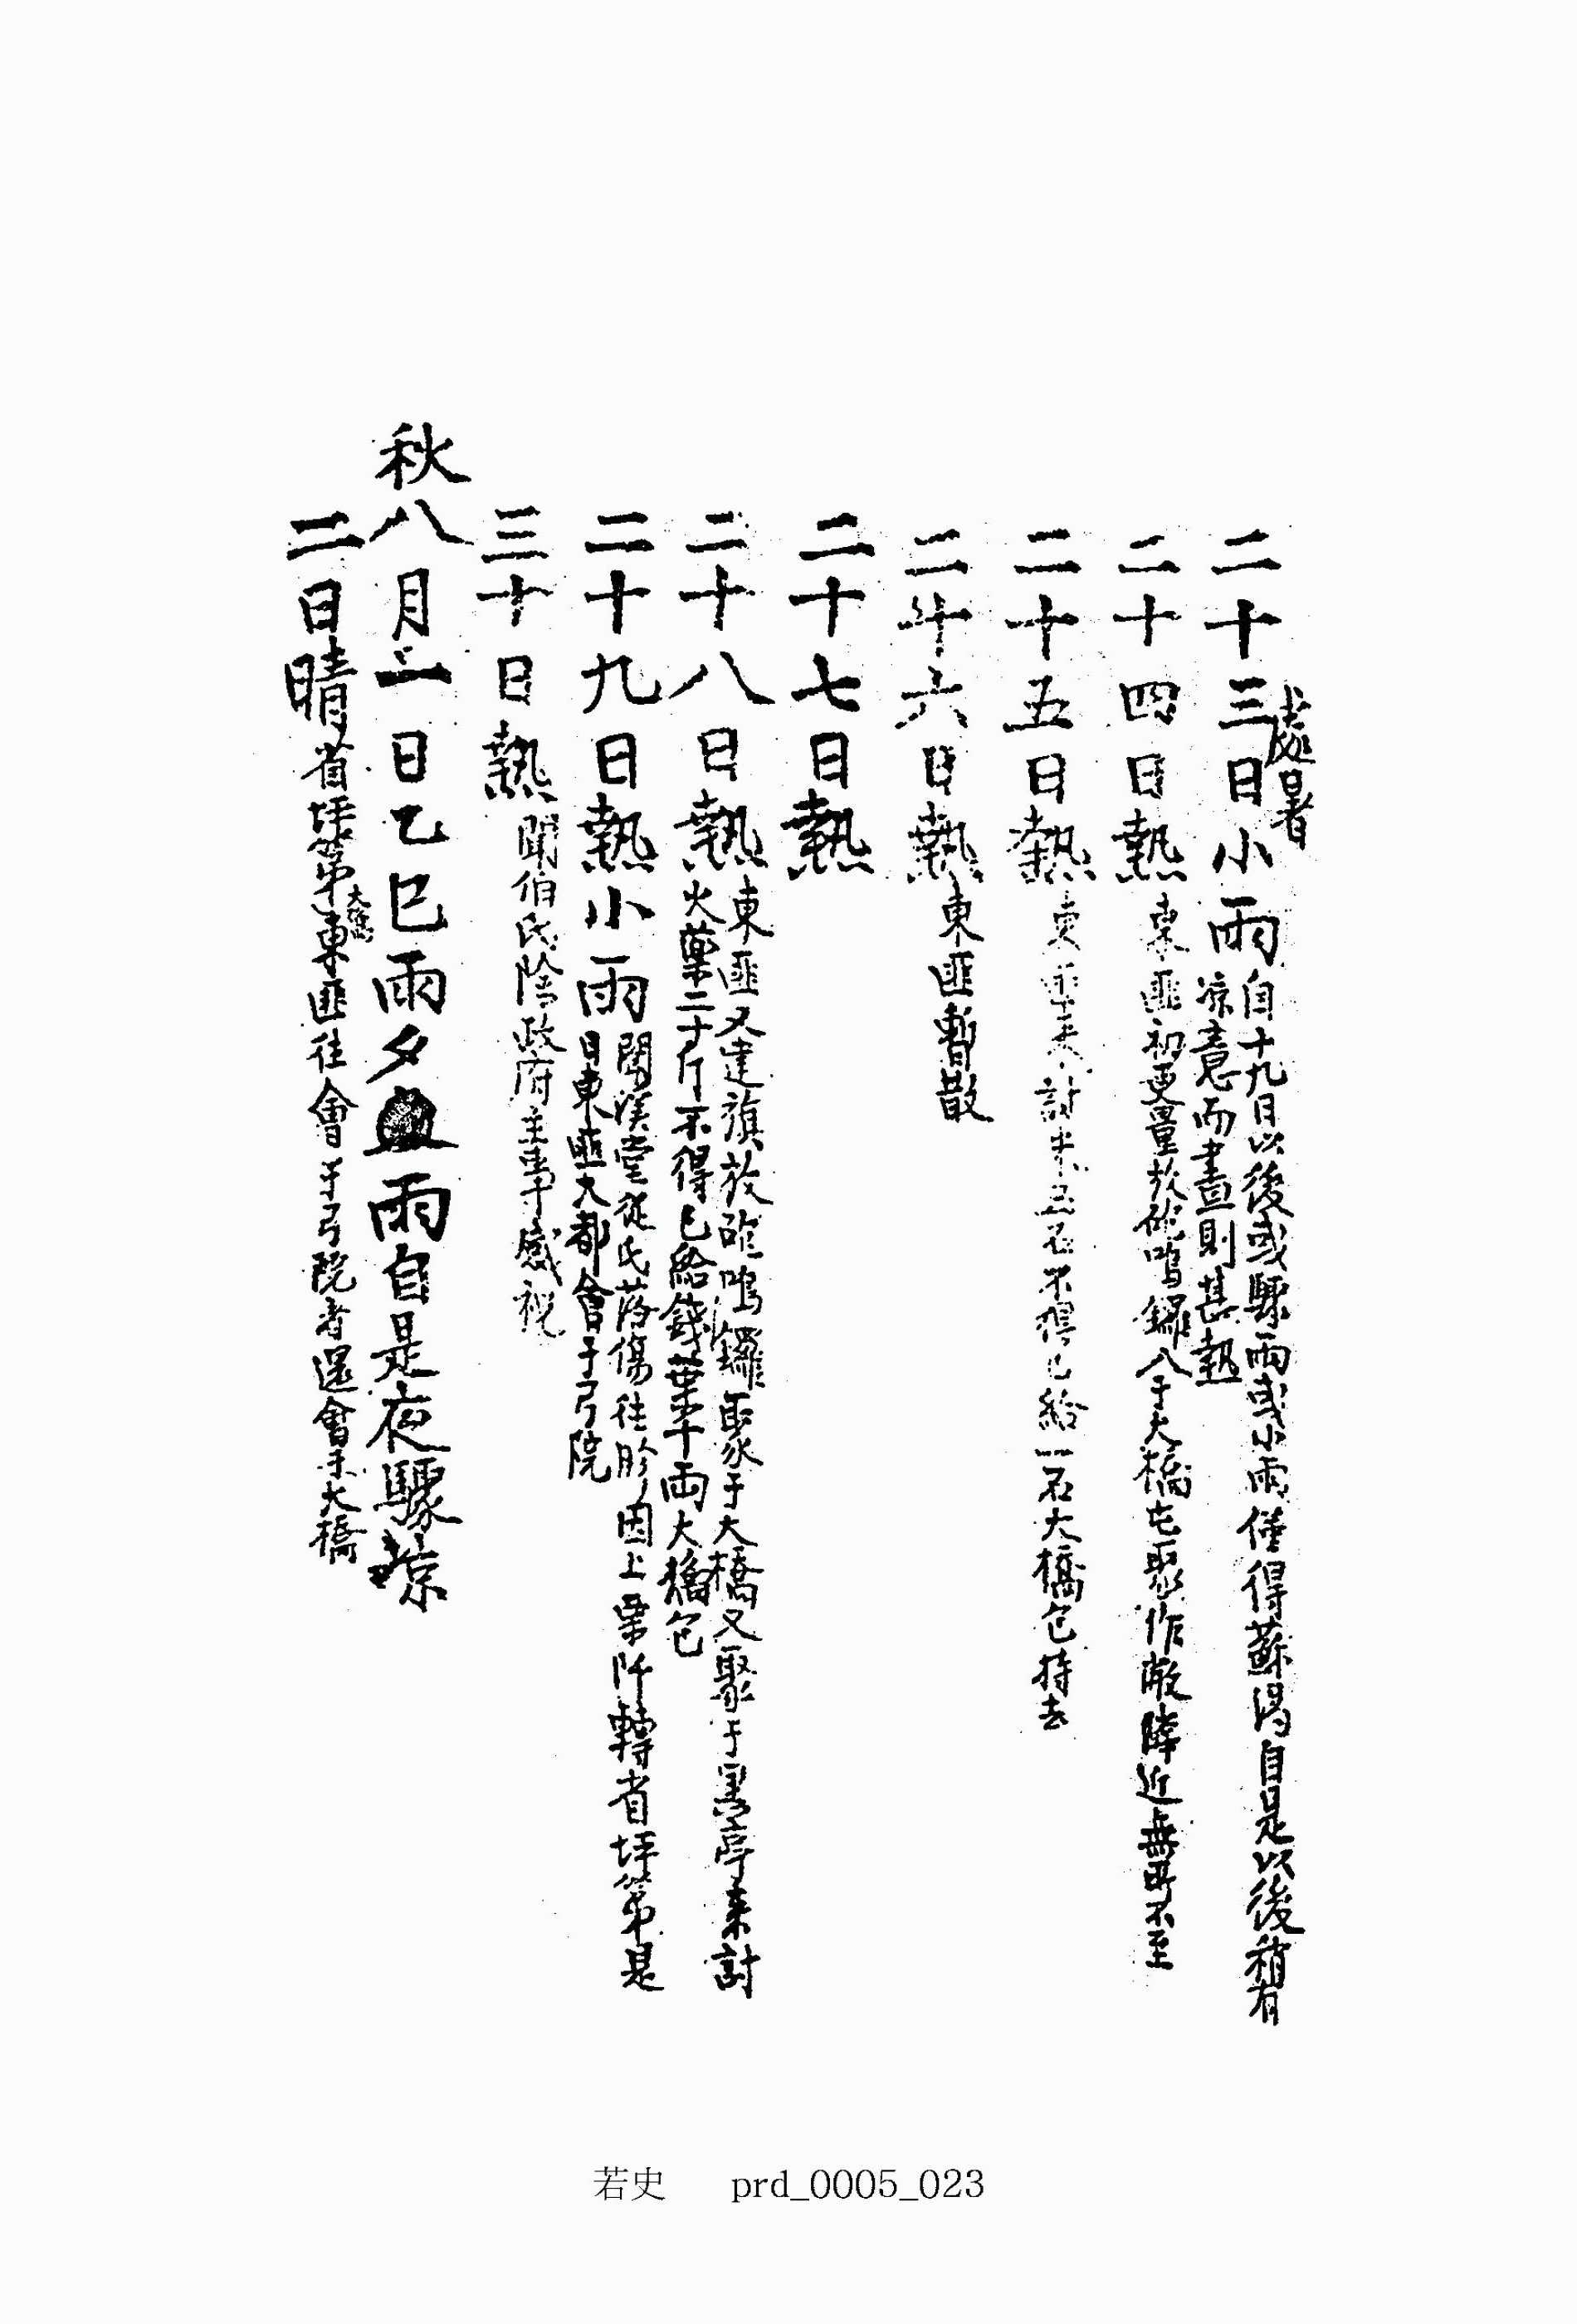 二十三日小雨自十九日以後或驟雨或小雨僅得蘇渴自是以後稍有
處暑
凉意而晝則甚熱
二十四日熱東匪初更量放砲鳴鑼入于大橋屯聚作敝隣近無所不至
二十五日熱東匪來討米五石不得已給一石大橋包持去
二十六日熱東匪暫散
二十七日熱
二十八日熱東匪又建旗放砲鳴鑼聚于大橋又聚于黑亭來討
火藥二十斤不得已給錢葉十兩大橋包
二十九日熱小雨聞漢堂從氏落傷往診因上栗阡轉省坪第是
日東匪大都會于弓院
三十日熱聞伯氏除政府主事感祝
秋八月一日乙巳雨夕雨自是夜驟凉
二日晴省坪第東匪往會于弓院者還會于大橋